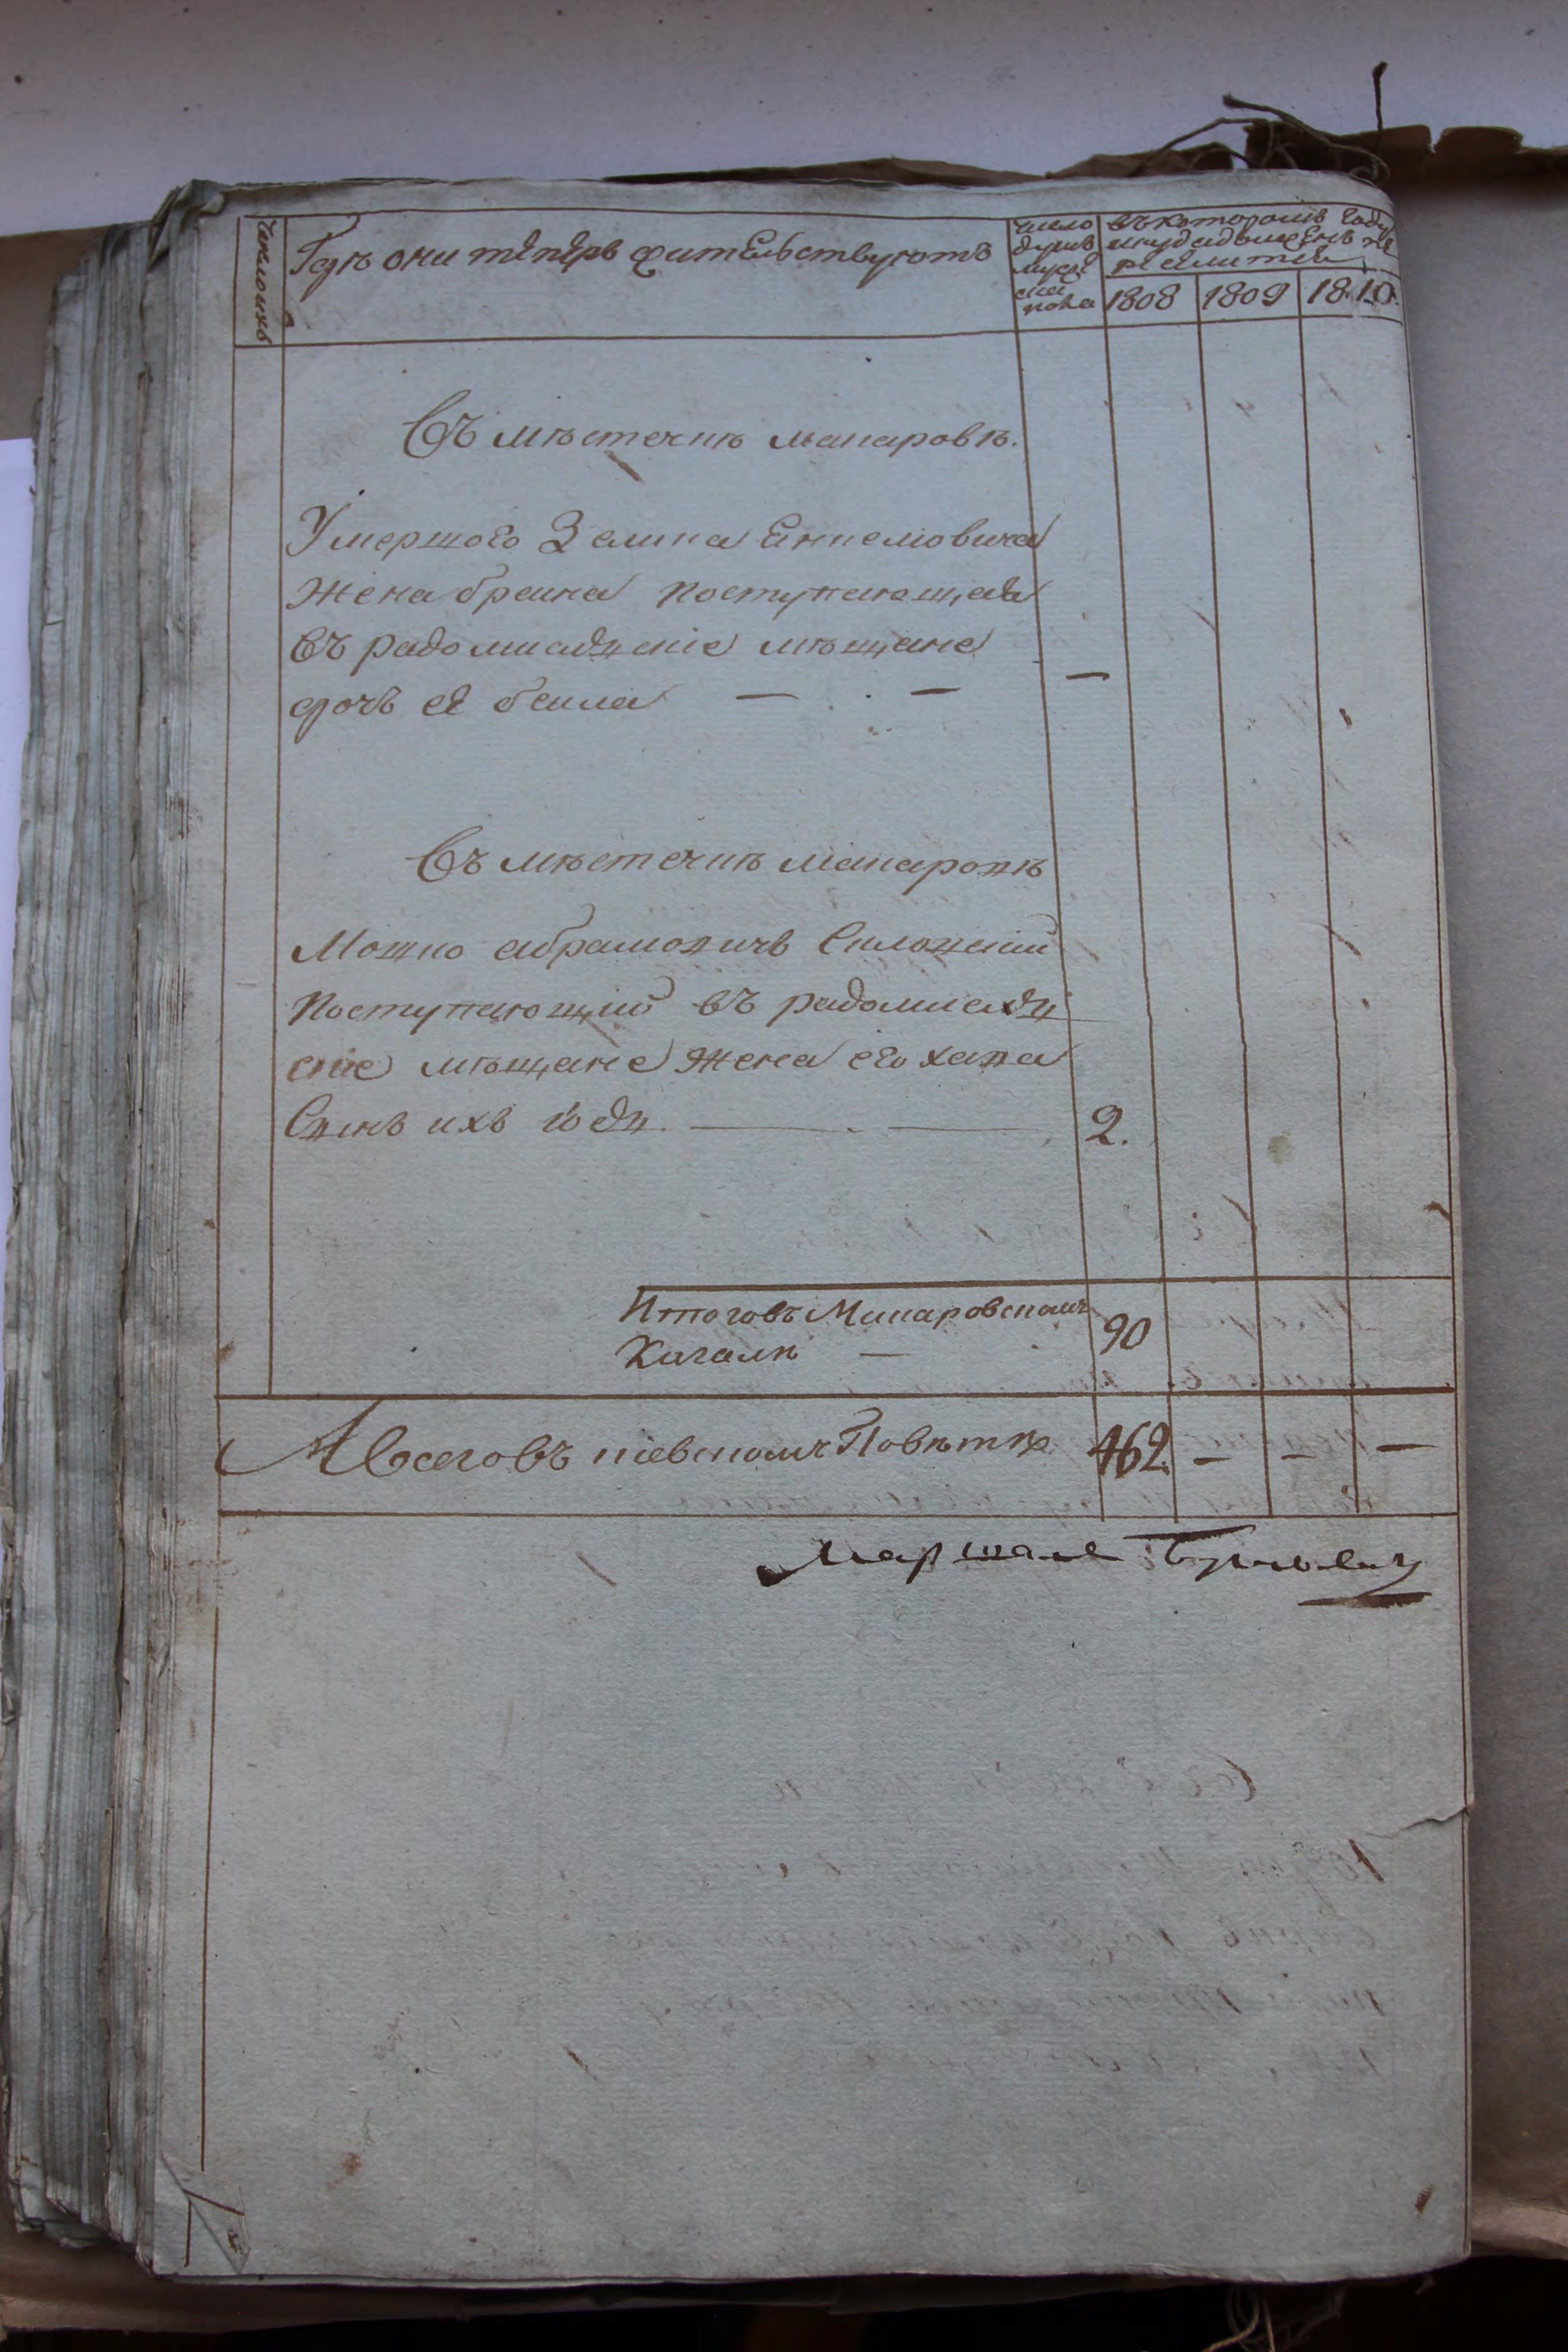 Число ихъ
Гдѣ они теперь жительствуютъ
число
душъ
муже
ска
пола
въ которомъ году
и куда должен
реселитси
1808 1809 1810.
Въ мѣстечкѣ макаровѣ.
Умершого Зелика
Жена браина поступающая
въ радомисльские мѣщане
дочь ея беила — —
—
Въ мѣстечкѣ макаровѣ
Мошко абрамовичъ
Поступающий въ радомислъ
ские мѣщане Жена его хава
Синъ ихъ — — 2.
Итого въ Макаровскомъ
Кагалѣ — 90
А всего въ киевскомъ Повѣтѣ 462 — — —
Маршал